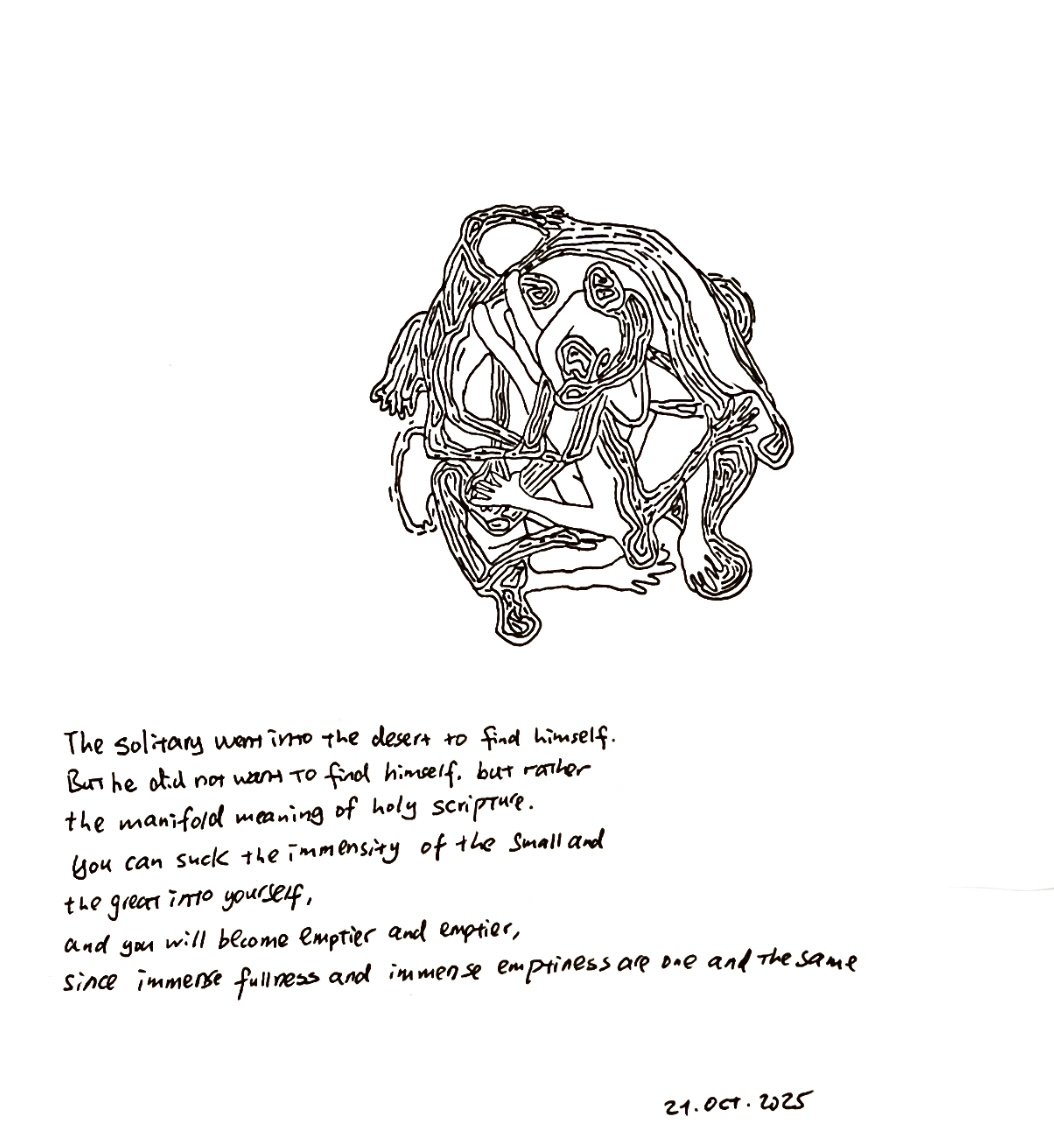 The solitary went into the desert to find himself.
But he did not want to find himself, but rather
the manifold meaning of holy scripture.
You can suck the immensity of the small and
the great into yourself,
and you will become emptier and emptier,
since immense fullness and immense emptiness are one and the same
21.Oct.2025